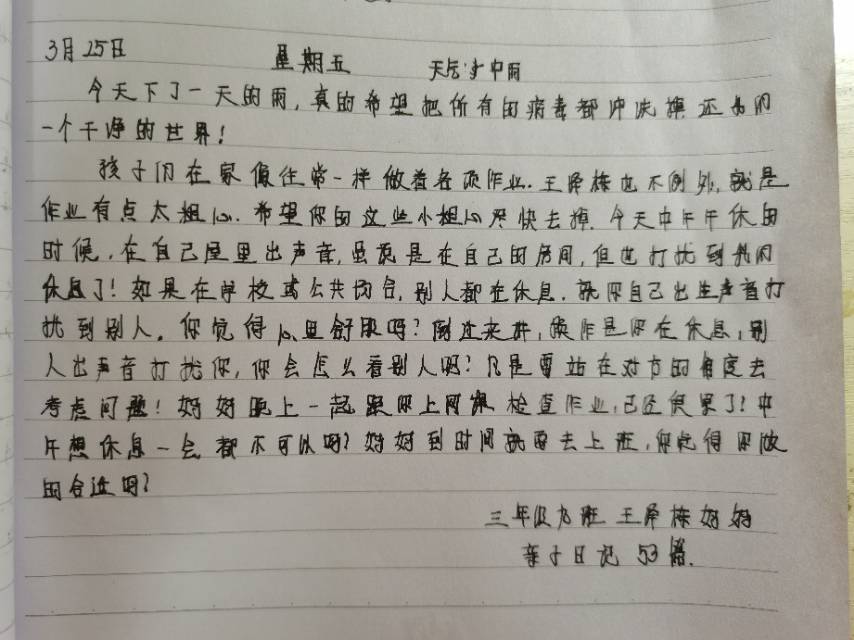 3月25日 星期五 天气:中雨
今天下了一天的雨,真的希望把所有的病毒都冲洗掉还我们
一个干净的世界!
孩子们在家像往常一样做着各项作业.王泽栋也不例外,就是
作业有点太粗心.希望你的这些小粗心尽快去掉.今天中午午休的
时候,在自己屋里出声音,虽说是在自己的房间,但也打扰到我们
休息了!如果在学校或公共场合,别人都在休息.就你自己出生声音打
扰到别人.你觉得心里舒服吗?倒过来讲,换作是你在休息,别
人出声音打扰你,你会怎么看别人呢?凡是要站在对方的角度去
考虑问题!妈妈晚上一起跟你上网课检查作业,已经很累了!中
午想休息一会都不可以吗?妈妈到时间就要去上班,你觉得你做
的合适吗?
三年级九班 王泽栋妈妈
亲子日记 53篇.